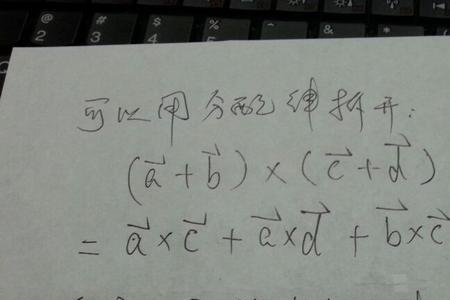 @ # $ %
2 3 4 5
可以用分配律拆开:
(a⃗ + b⃗) × (c⃗ + d⃗)
= a⃗ × c⃗ + a⃗ × d⃗ + b⃗ × c⃗